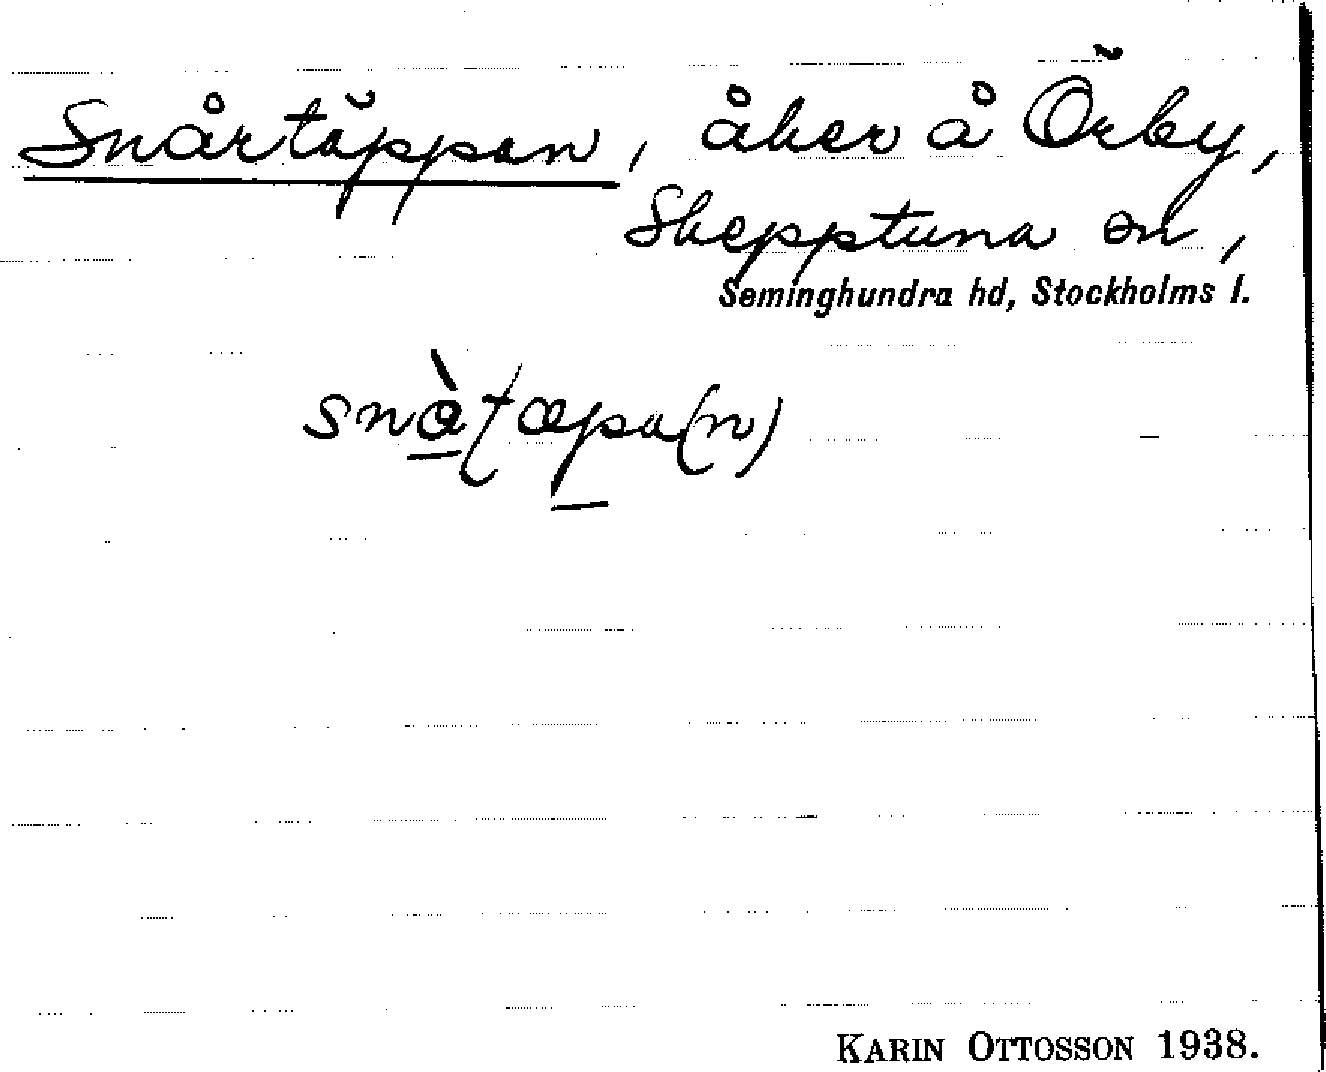 Snårtäppan, åker å Örby,
Skepptuna sn,
Seminghundra hd, Stockholms l.
KARIN OTTOSSON 1938.